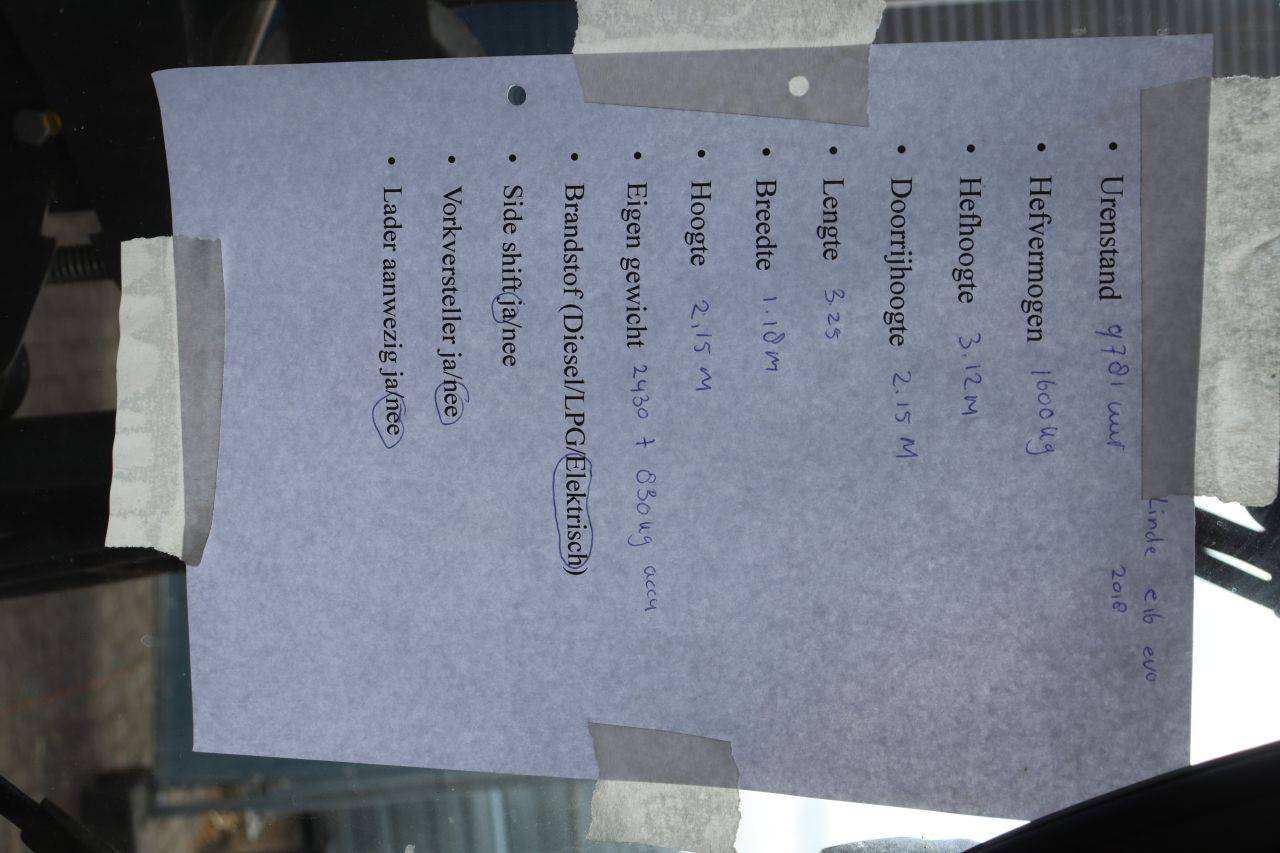 Linde e16 evo
2018
• Urenstand 9781 uur
• Hefvermogen 1600 kg
• Hefhoogte 3.12 M
• Doorrijhoogte 2.15 M
• Lengte 3.25
• Breedte 1.18 m
• Hoogte 2,15 M
• Eigen gewicht 2430 + 830 kg accu
• Brandstof (Diesel/LPG/Elektrisch)
• Side shift ja/nee
• Vorkversteller ja/nee
• Lader aanwezig ja/nee